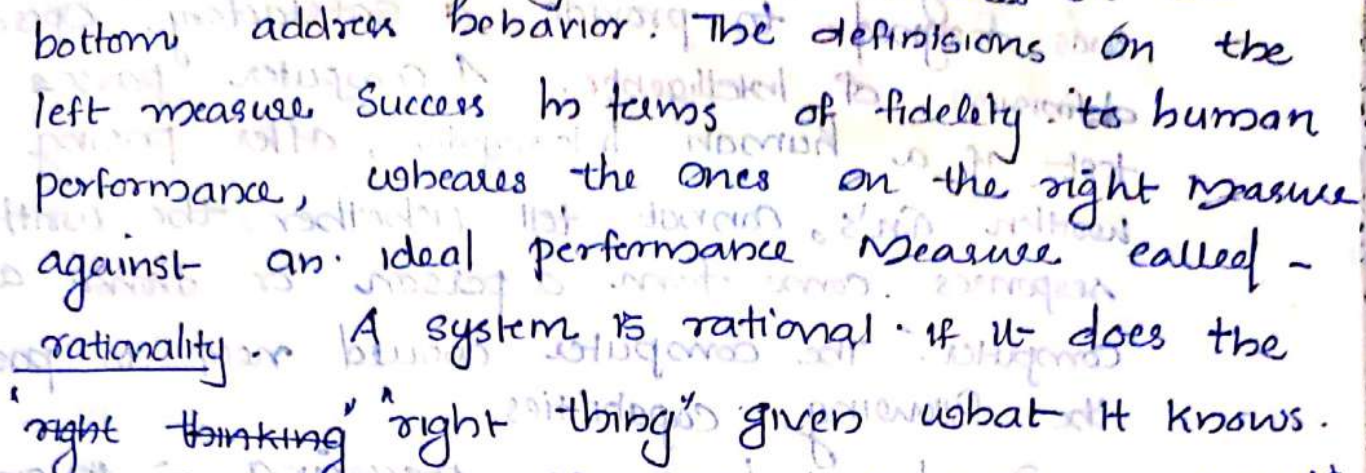 bottom address behavior. The definisions on the
left measure Success in terms of fidelety to human
performance, wheares the ones on the right measure
against an ideal performance Measure called -
rationality. A system is rational. if it does the
"right thinking" "right thing" given what it knows.